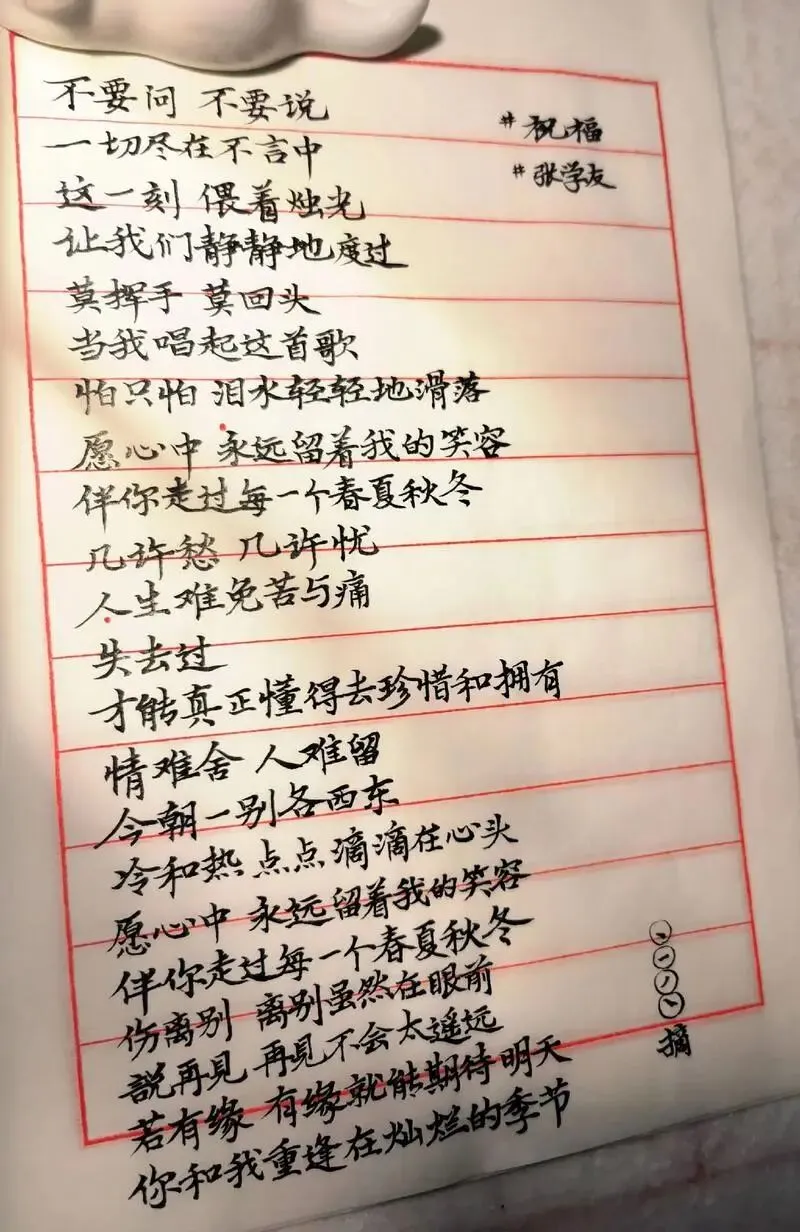 不要问 不要说
#祝福
一切尽在不言中
#张学友
这一刻 偎着烛光
让我们静静地度过
莫挥手 莫回头
当我唱起这首歌
怕只怕 泪水轻轻地滑落
愿心中 永远留着我的笑容
伴你走过每一个春夏秋冬
几许愁 几许忧
人生难免苦与痛
失去过
才能真正懂得去珍惜和拥有
情难舍 人难留
今朝一别各西东
冷和热 点点滴滴在心头
愿心中 永远留着我的笑容
伴你走过每一个春夏秋冬
伤离别 离别虽然在眼前
説再見 再見不会太遥远
若有缘 有缘就能期待明天
你和我重逢在灿烂的季节
摘